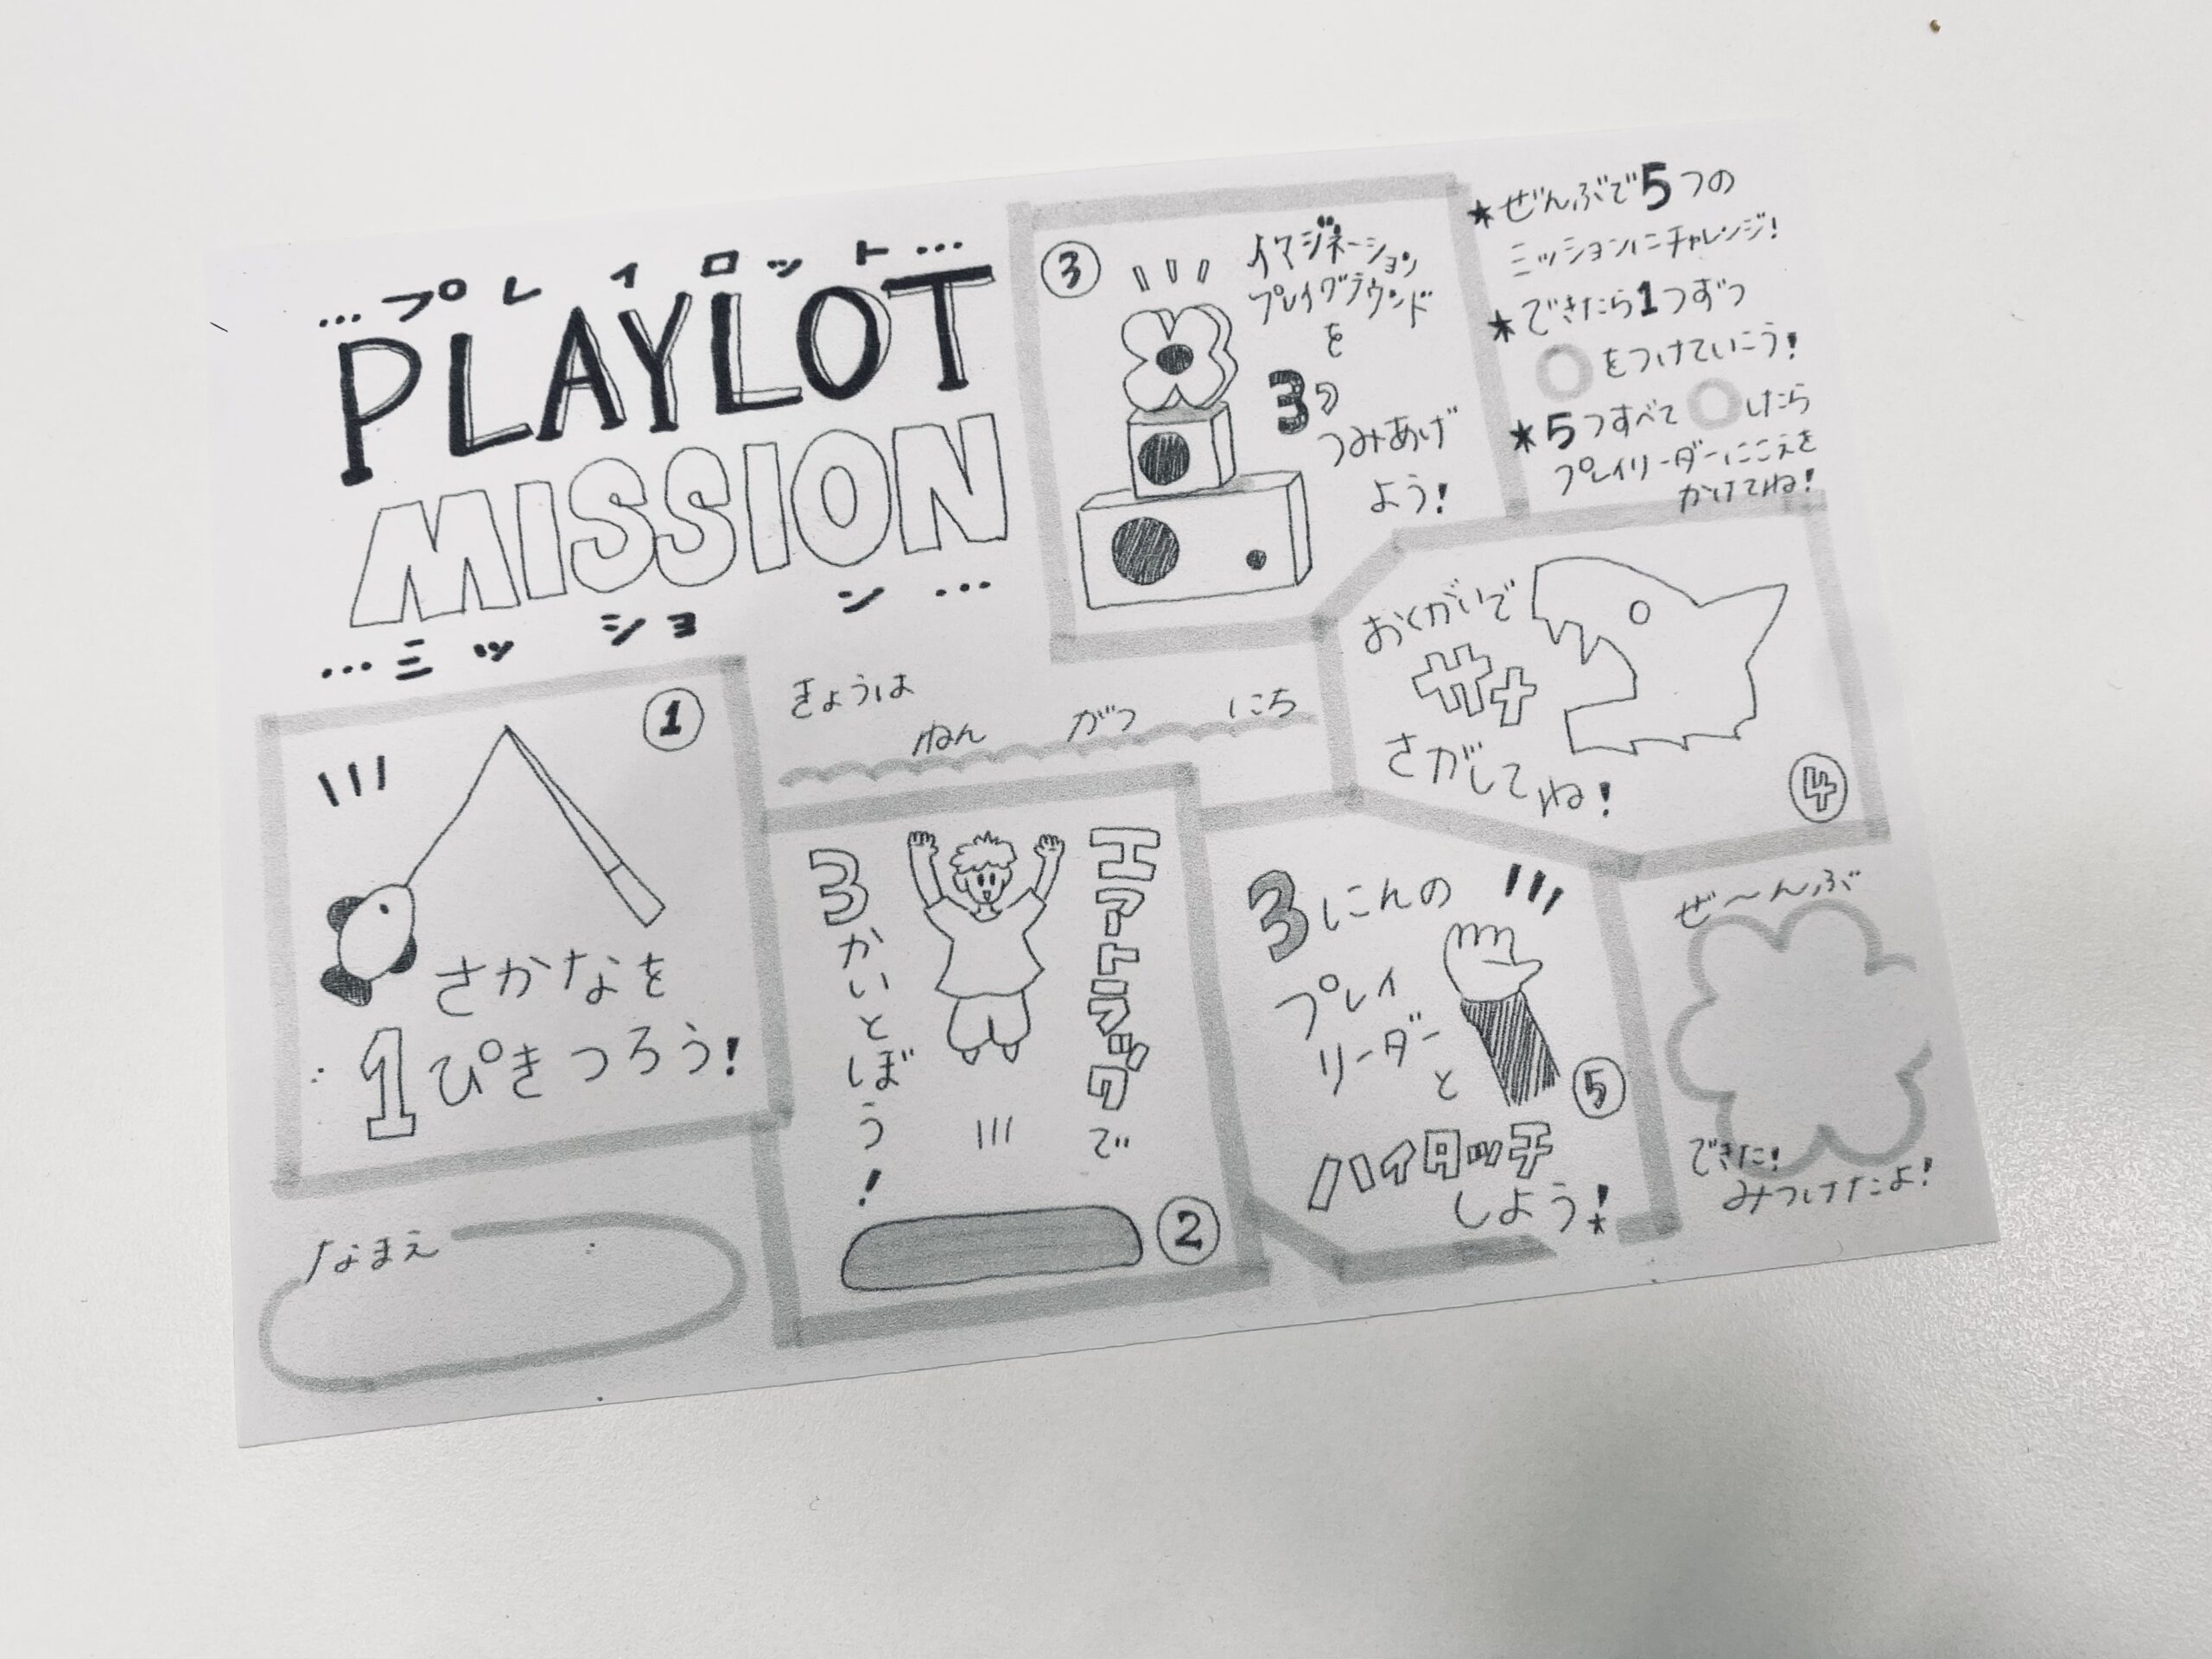 …プレイロット…
PLAYLOT
MISSION
…ミッション…
★ぜんぶで5つの
ミッションにチャレンジ!
★できたら1つずつ
○をつけていこう!
★5つすべて○したら
プレイリーダーにこえを
かけてね!
きょうは
ねん がつ にち
①
さかなを
1ぴきつろう!
なまえ
エアートラックで
3かいとぼう!
②
③
イマジネーション
プレイグラウンド
を
3つ
つみあげ
よう!
おくがいで
サメ
さがしてね!
④
3にんの
プレイ
リーダー
と
ハイタッチ
しよう!
⑤
ぜ〜んぶ
できた!
みつけたよ!